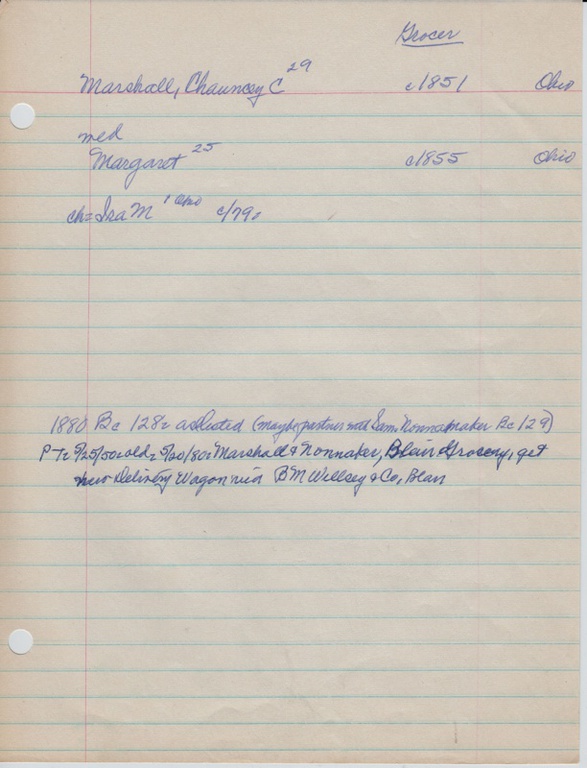 Grocer
Marshall, Chauncey C 29 c1851 Ohio
med
Margaret 25 c1855 Ohio
ch= Ira M 1 Ohio c/79=
1880 Bc 128= as listed (maybe partner with Sam Nonnamaker Bc 129)
PT= 5/25/50= old= 5/20/80= Marshall & Nonnaker, Blair Grocery, get
new Delivery Wagon B M Willsey & Co, Blair